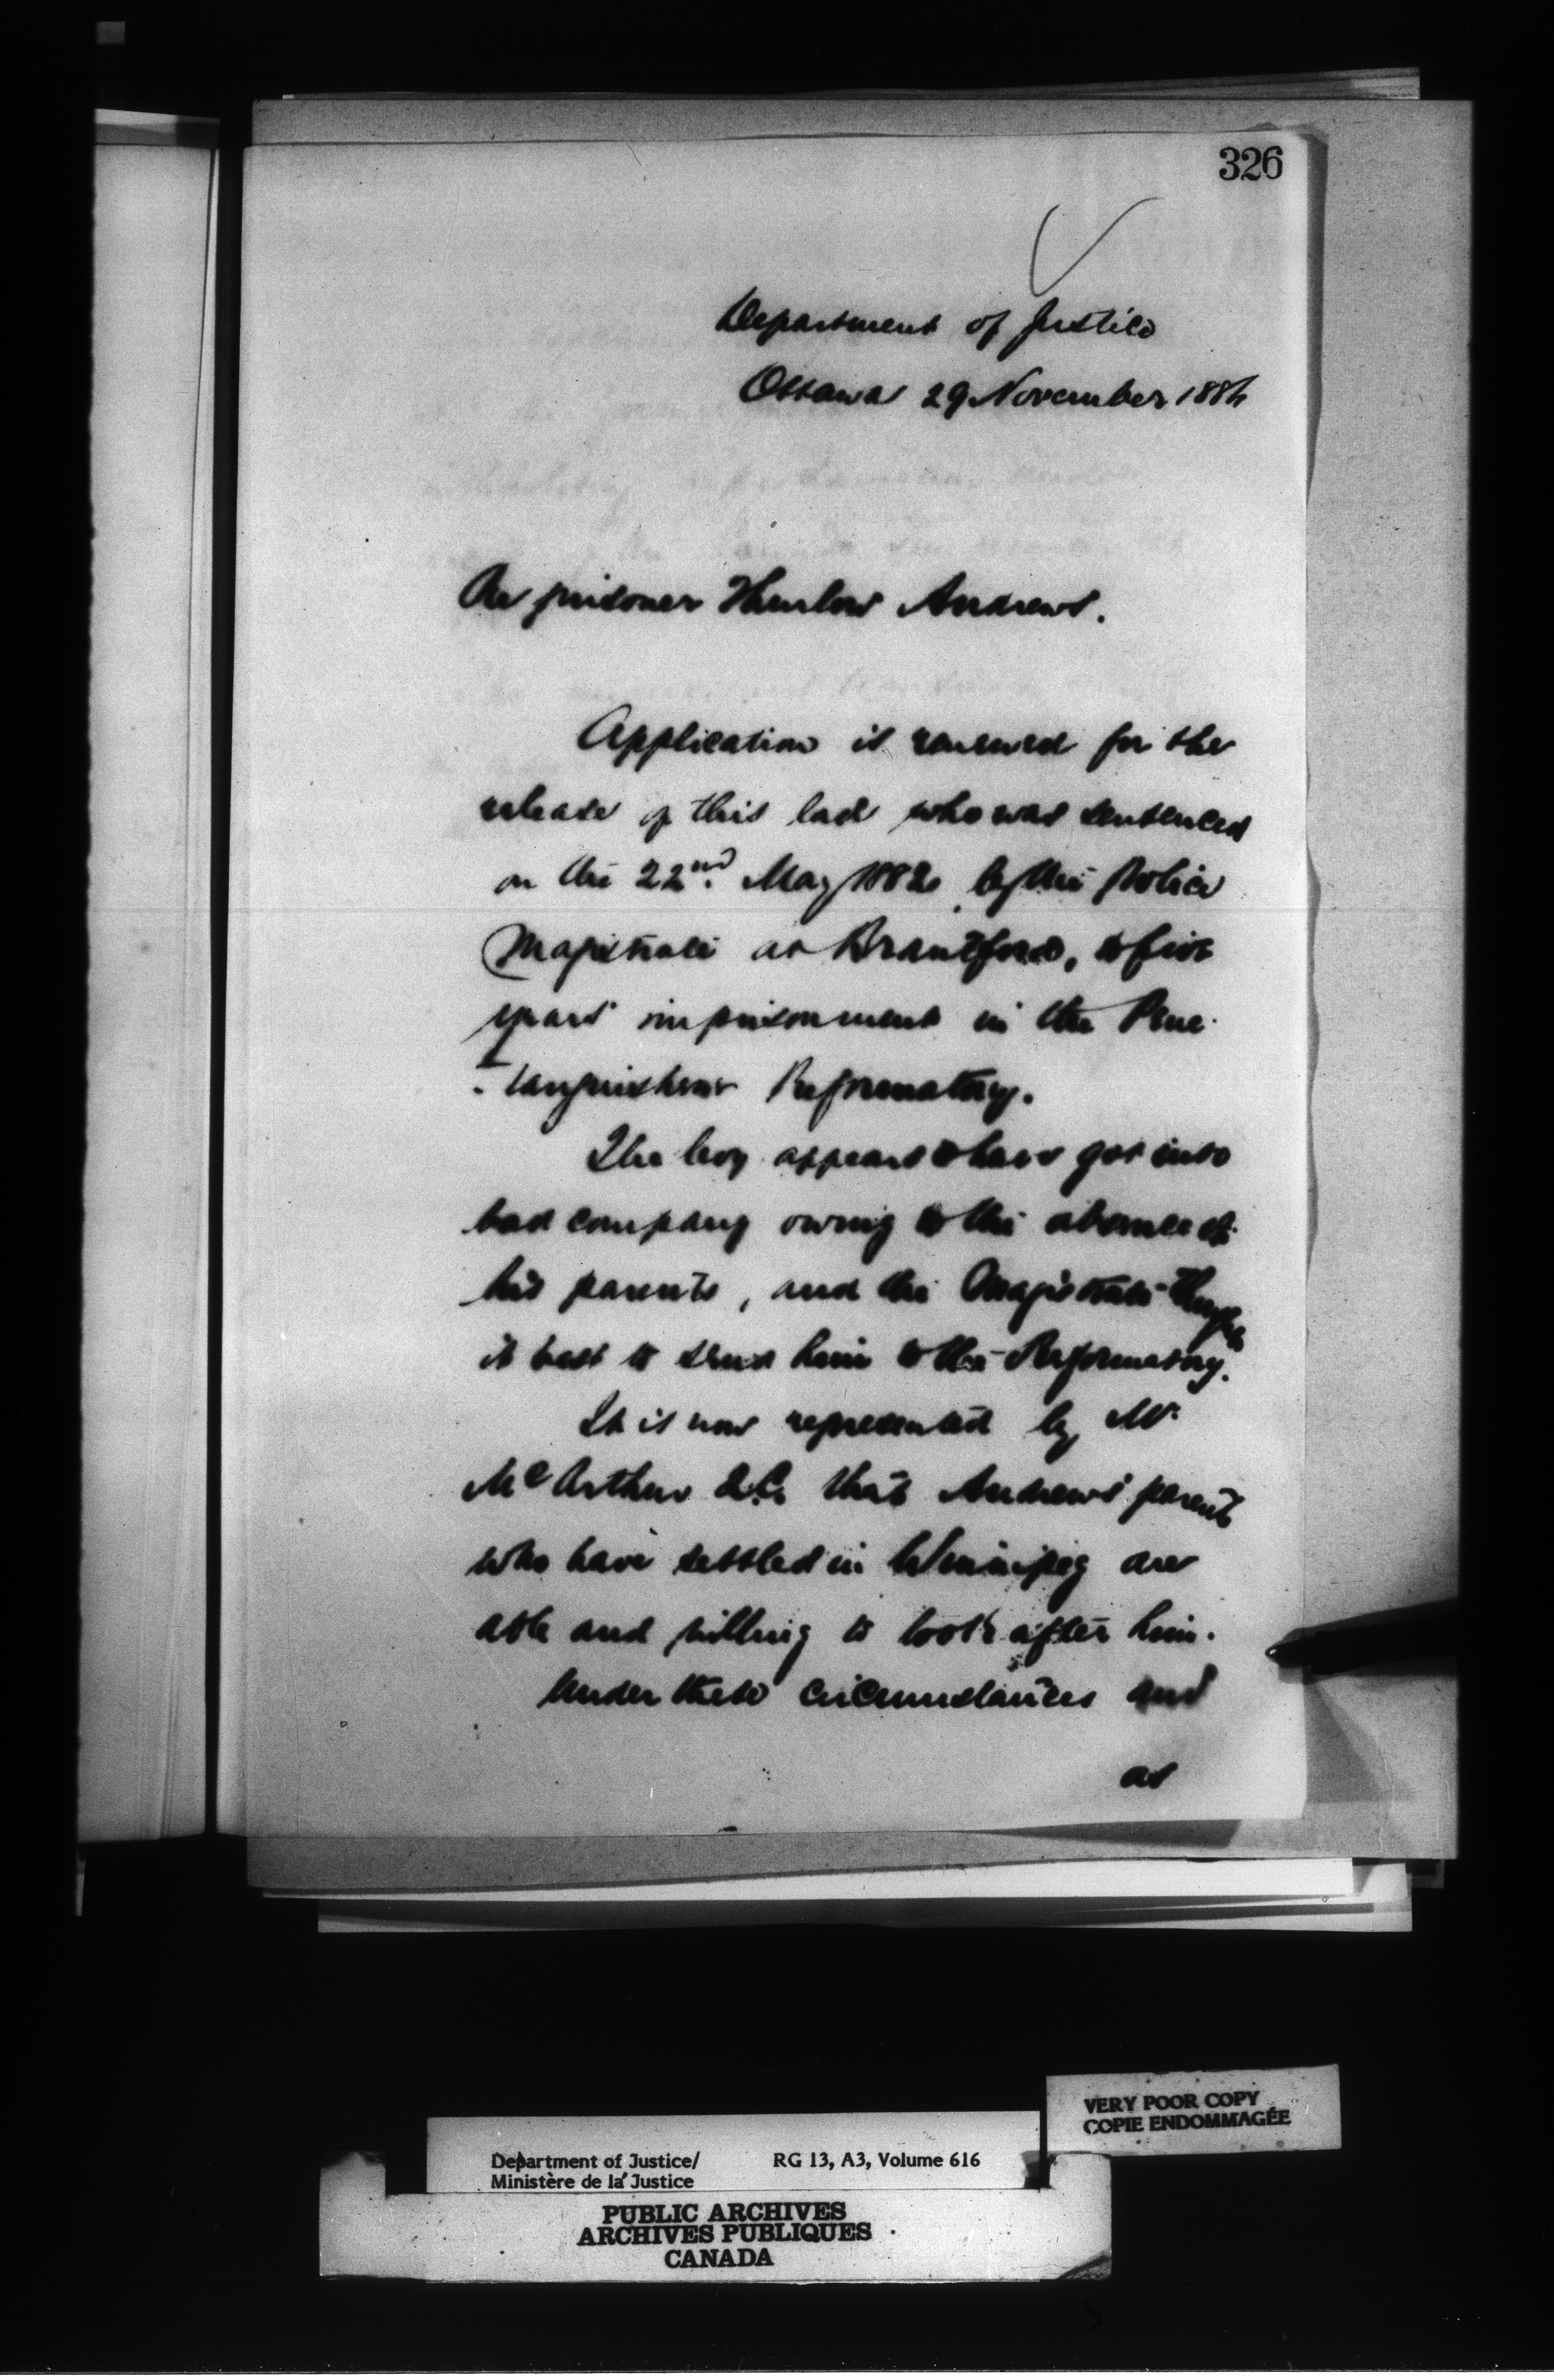 326
Department of Justice
Ottawa 29 November 1884
Re prisoner Thurlow Andrews.
Application is renewed for the
release of this lad who was sentenced
on the 22nd. May 1882 by the Police
Magistrate at Brantford, to five
years imprisonment in the Pene-
-tanguishene Reformatory.
The boy appears to have got into
bad company owing to the absence of
his parents, and the Magistrate thought
it best to send him to the Reformatory.
It is now represented by Mr
McArthur Q.C. that Andrews' parents
who have settled in Winnipeg are
able and willing to look after him.
Under these circumstances and
as
VERY POOR COPY
COPIE ENDOMMAGÉE
Department of Justice/ RG 13, A3, Volume 616
Ministère de la Justice
PUBLIC ARCHIVES
ARCHIVES PUBLIQUES
CANADA